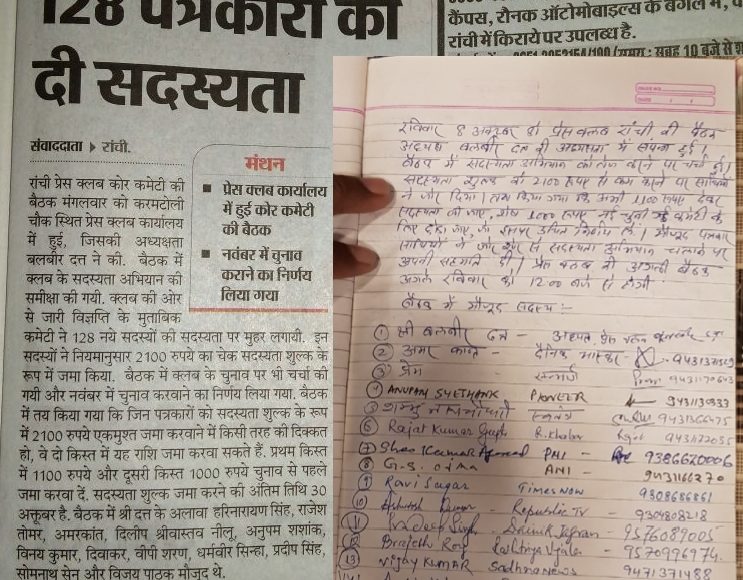 128 पत्रकारों को
दी सदस्यता
संवाददाता ▶ रांची.
रांची प्रेस क्लब कोर कमेटी की
बैठक मंगलवार को करमटोली
चौक स्थित प्रेस क्लब कार्यालय
में हुई, जिसकी अध्यक्षता
बलबीर दत्त ने की. बैठक में
क्लब के सदस्यता अभियान की
समीक्षा की गयी. क्लब की ओर
से जारी विज्ञप्ति के मुताबिक
कमेटी ने 128 नये सदस्यों की सदस्यता पर मुहर लगायी. इन
सदस्यों ने नियमानुसार 2100 रुपये का चेक सदस्यता शुल्क के
रूप में जमा किया. बैठक में क्लब के चुनाव पर भी चर्चा की
गयी और नवंबर में चुनाव करवाने का निर्णय लिया गया. बैठक
में तय किया गया कि जिन पत्रकारों को सदस्यता शुल्क के रूप
में 2100 रुपये एकमुश्त जमा करवाने में किसी तरह की दिक्कत
हो, वे दो किस्त में यह राशि जमा करवा सकते हैं. प्रथम किस्त
में 1100 रुपये और दूसरी किस्त 1000 रुपये चुनाव से पहले
जमा करवा दें. सदस्यता शुल्क जमा करने की अंतिम तिथि 30
अक्तूबर है. बैठक में श्री दत्त के अलावा हरिनारायण सिंह, राजेश
तोमर, अमरकांत, दिलीप श्रीवास्तव नीलू, अनुपम शशांक,
विनय कुमार, दिवाकर, वीपी शरण, धर्मवीर सिन्हा, प्रदीप सिंह,
सोमनाथ सेन और विजय पाठक मौजूद थे.
मंथन
■ प्रेस क्लब कार्यालय
में हुई कोर कमेटी
की बैठक
■ नवंबर में चुनाव
कराने का निर्णय
लिया गया
कैंपस, रौनक ऑटोमोबाइल्स के बगल में,
रांची में किराये पर उपलब्ध है.
सुबह 10 बजे से
रविवार 8 अक्टूबर को प्रेस क्लब रांची की बैठक
अध्यक्ष बलबीर दत्त की अध्यक्षता में संपन्न हुई।
बैठक में सदस्यता अभियान को तेज करने पर चर्चा हुई।
सदस्यता शुल्क को 2100 रुपए से कम करने पर साथियों
ने जोर दिया। तय किया गया कि अभी 1100 रुपए देकर
सदस्यता ली जाए, शेष 1000 रुपए नई चुनी गई कमेटी के
लिए छोड़ा जाए, उचित निर्णय ले। मौजूद पत्रकार
साथियों ने जोर शोर से सदस्यता अभियान चलाने पर
अपनी सहमति दी। प्रेस क्लब की अगली बैठक
अगले रविवार को 12.00 बजे से होगी।
बैठक में मौजूद सदस्य :-
① श्री बलबीर दत्त - अध्यक्ष, प्रेस क्लब
② अमर कान्त - दैनिक भास्कर -
③ प्रेम - सन्मार्ग 9431170643
④ ANUPAM SHESHANK PIONEER 9431139333
⑤ स्वतंत्र 9431366475
⑥ Rajat Kumar Gupta R. Khabar
⑦ PNI - 9386620006
⑧ G.S. OJHA ANI - 9431166270
⑨ Ravi Sagar Times NOW 9308686861
⑩ Kumar - Republic TV - 9304808218
⑪ Pradeep Singh - Dainik Jagran - 9576089005
⑫ Brajesh Roy Rashtriya - 9570996974
⑬ Vijay KUMAR Sadhna News 9471371488